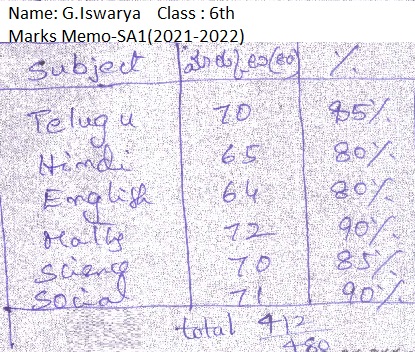 Name: G.Iswarya Class : 6th
Marks Memo-SA1(2021-2022)
Subject మార్కులు(80) %
Telugu 70 85%
Hindi 65 80%
English 64 80%
Maths 72 90%
Science 70 85%
Social 71 90%
total 412
480